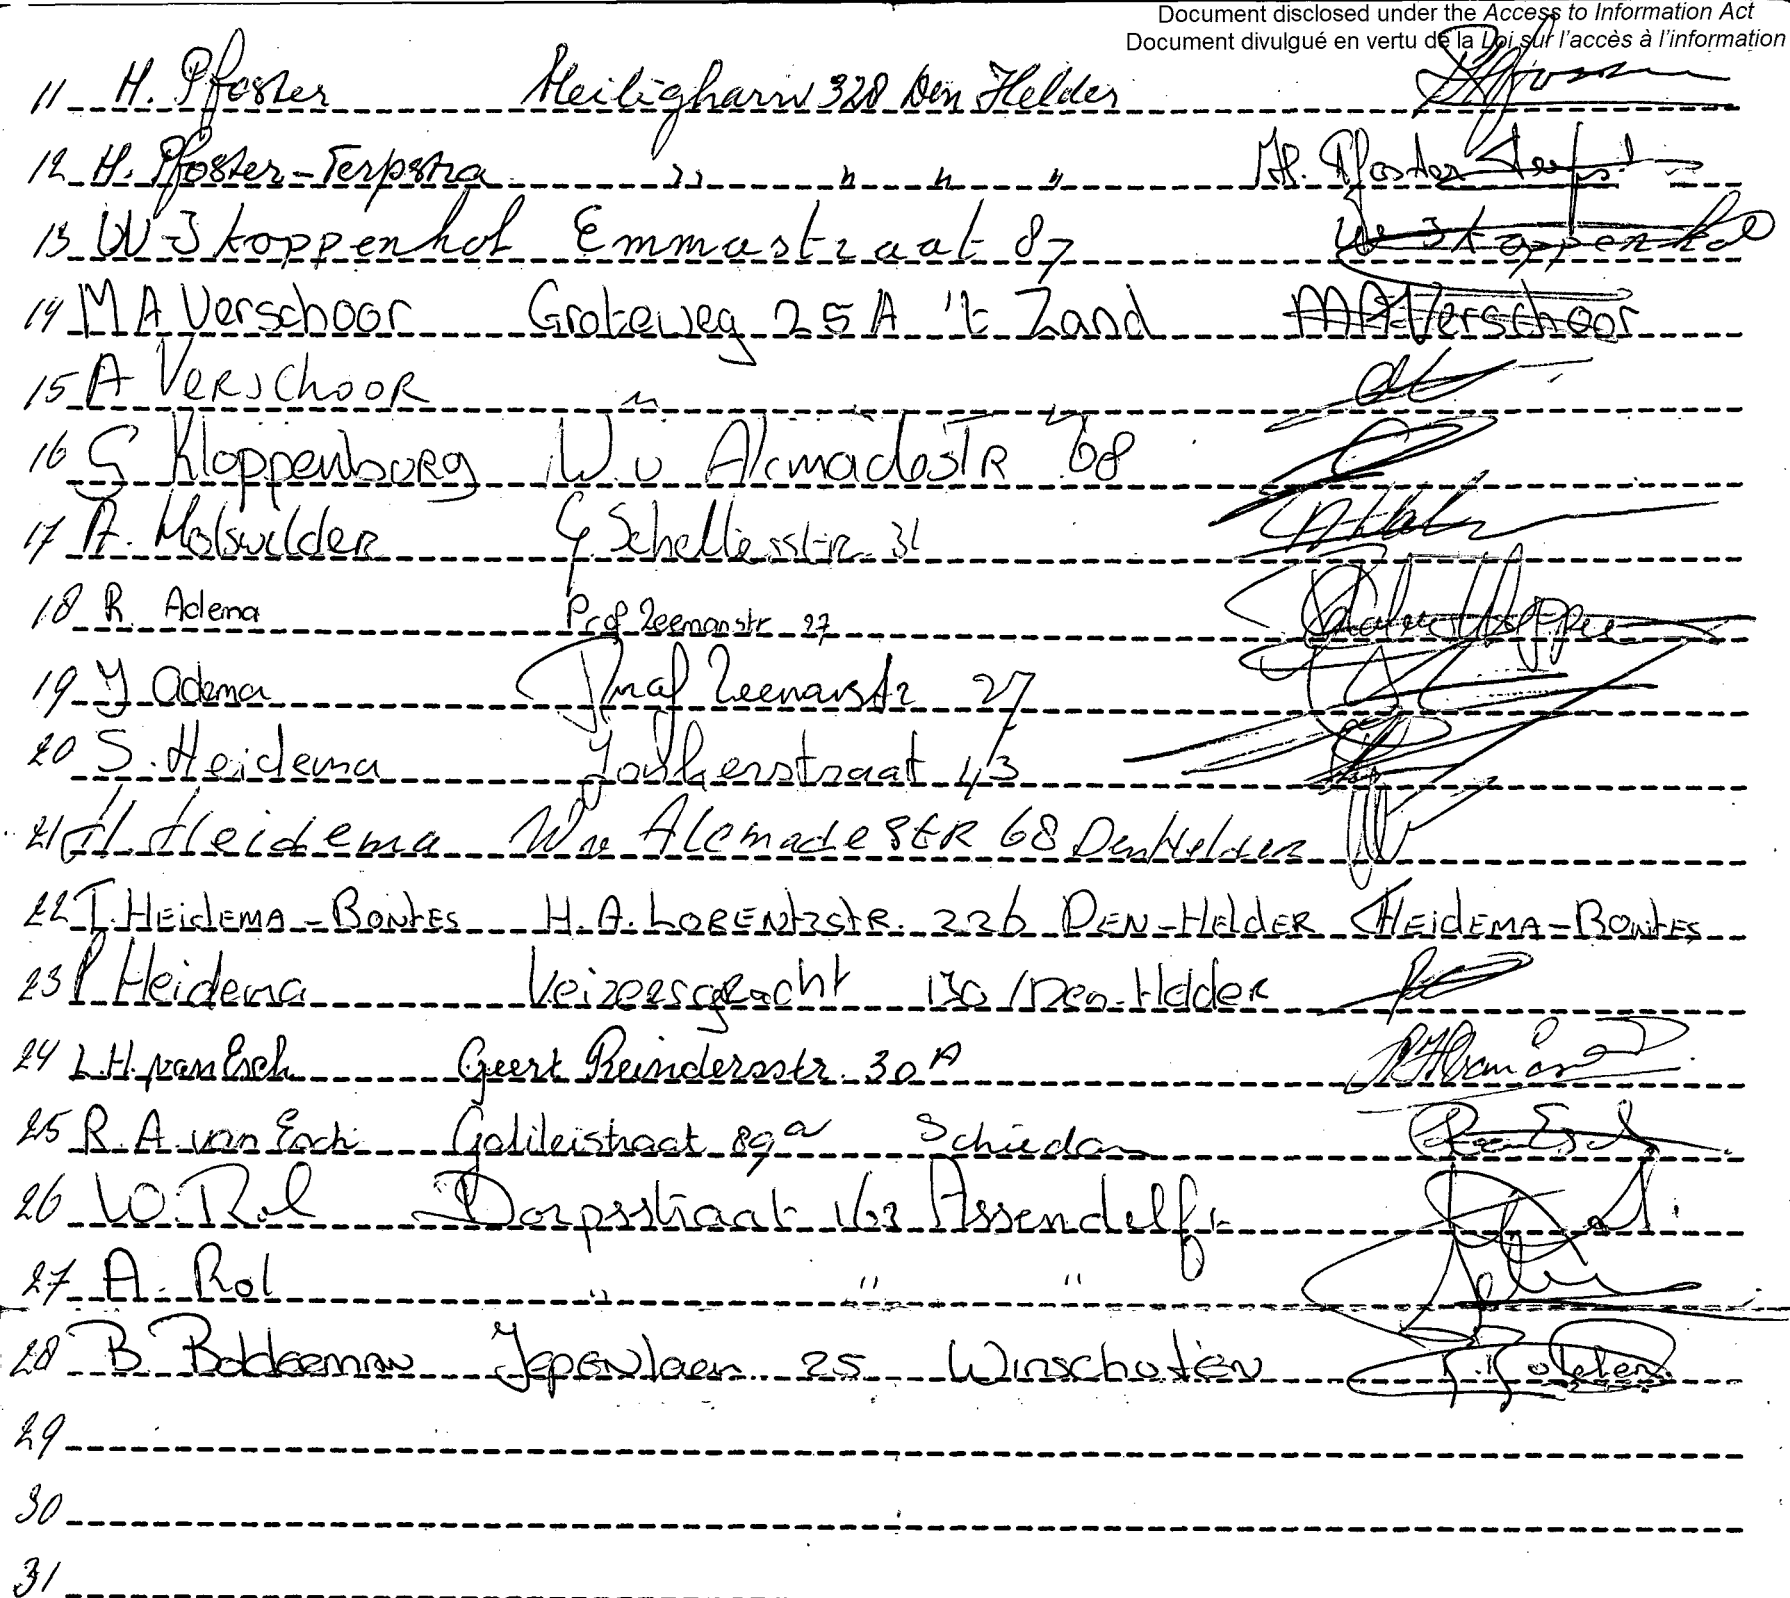 Document disclosed under the Access to Information Act
Document divulgué en vertu de la Loi sur l'accès à l'information
11 H. Pfoster Heiligharn 328 Den Helder
12 H. Pfoster-Terpstra " " " " H. Pfoster-Terpst
13 W Skoppenhof Emmastraat 87 W Skoppenhof
14 M A Verschoor Groteweg 25A 't Zand MA Verschoor
15 A Verschoor " " "
16 G Kloppenborg W. v Alcmadestr 68
17 A. Molswilder G Schellesstr. 31
18 R. Adema Prof Zeemanstr 27
19 J Adema Prof Zeemanstr 27
20 S. Heidema Jonkerstraat 43
21 H. Heidema W v Alcmadestr 68 Den Helder
22 T. Heidema-Bontes H.A. Lorentzstr. 226 Den-Helder Heidema-Bontes
23 P Heidema Keizersgracht 130 Den-Helder
24 L.H. van Esch Geert Reindersstr. 30A
25 R.A. van Esch Galileistraat 89a Schiedam
26 W. Rol Dorpsstraat 163 Assendelft
27 A. Rol " " "
28 B. Boldeeman Iepenlaan 25 Winschoten
29
30
31